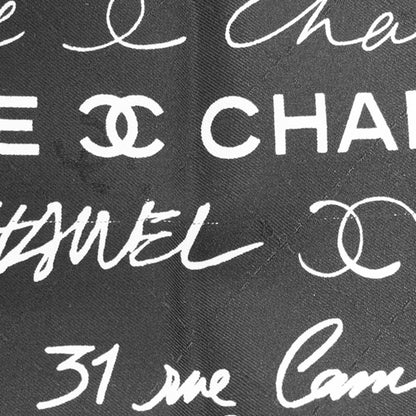 e Cha
E CHAN
HANEL
31 rue Cam